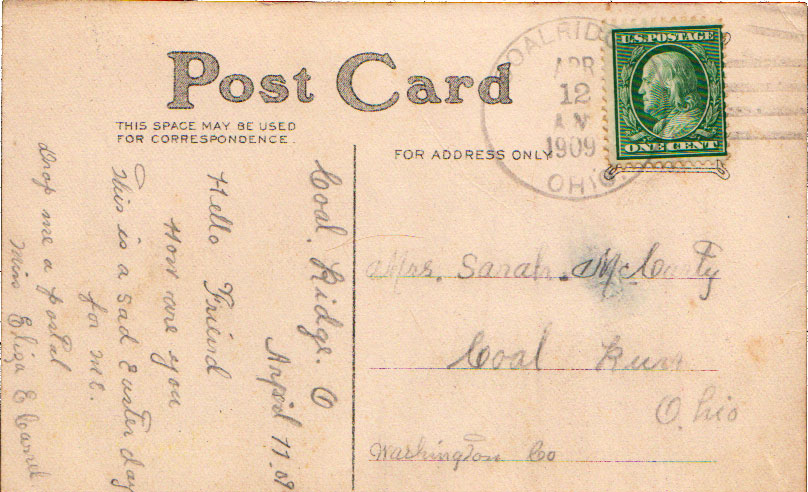 Post Card
THIS SPACE MAY BE USED
FOR CORRESPONDENCE.
FOR ADDRESS ONLY
COALRIDG
APR
12
1909
OHIO.
U.S. POSTAGE
ONE CENT
Coal. Ridge. O
Arpril 11.09
Hello Friend
How are you
This is a sad Easter day
for me.
Drop me a postal
Miss Eliza E
Mrs. Sarah. McCarty
Coal Run
Ohio
Washington Co